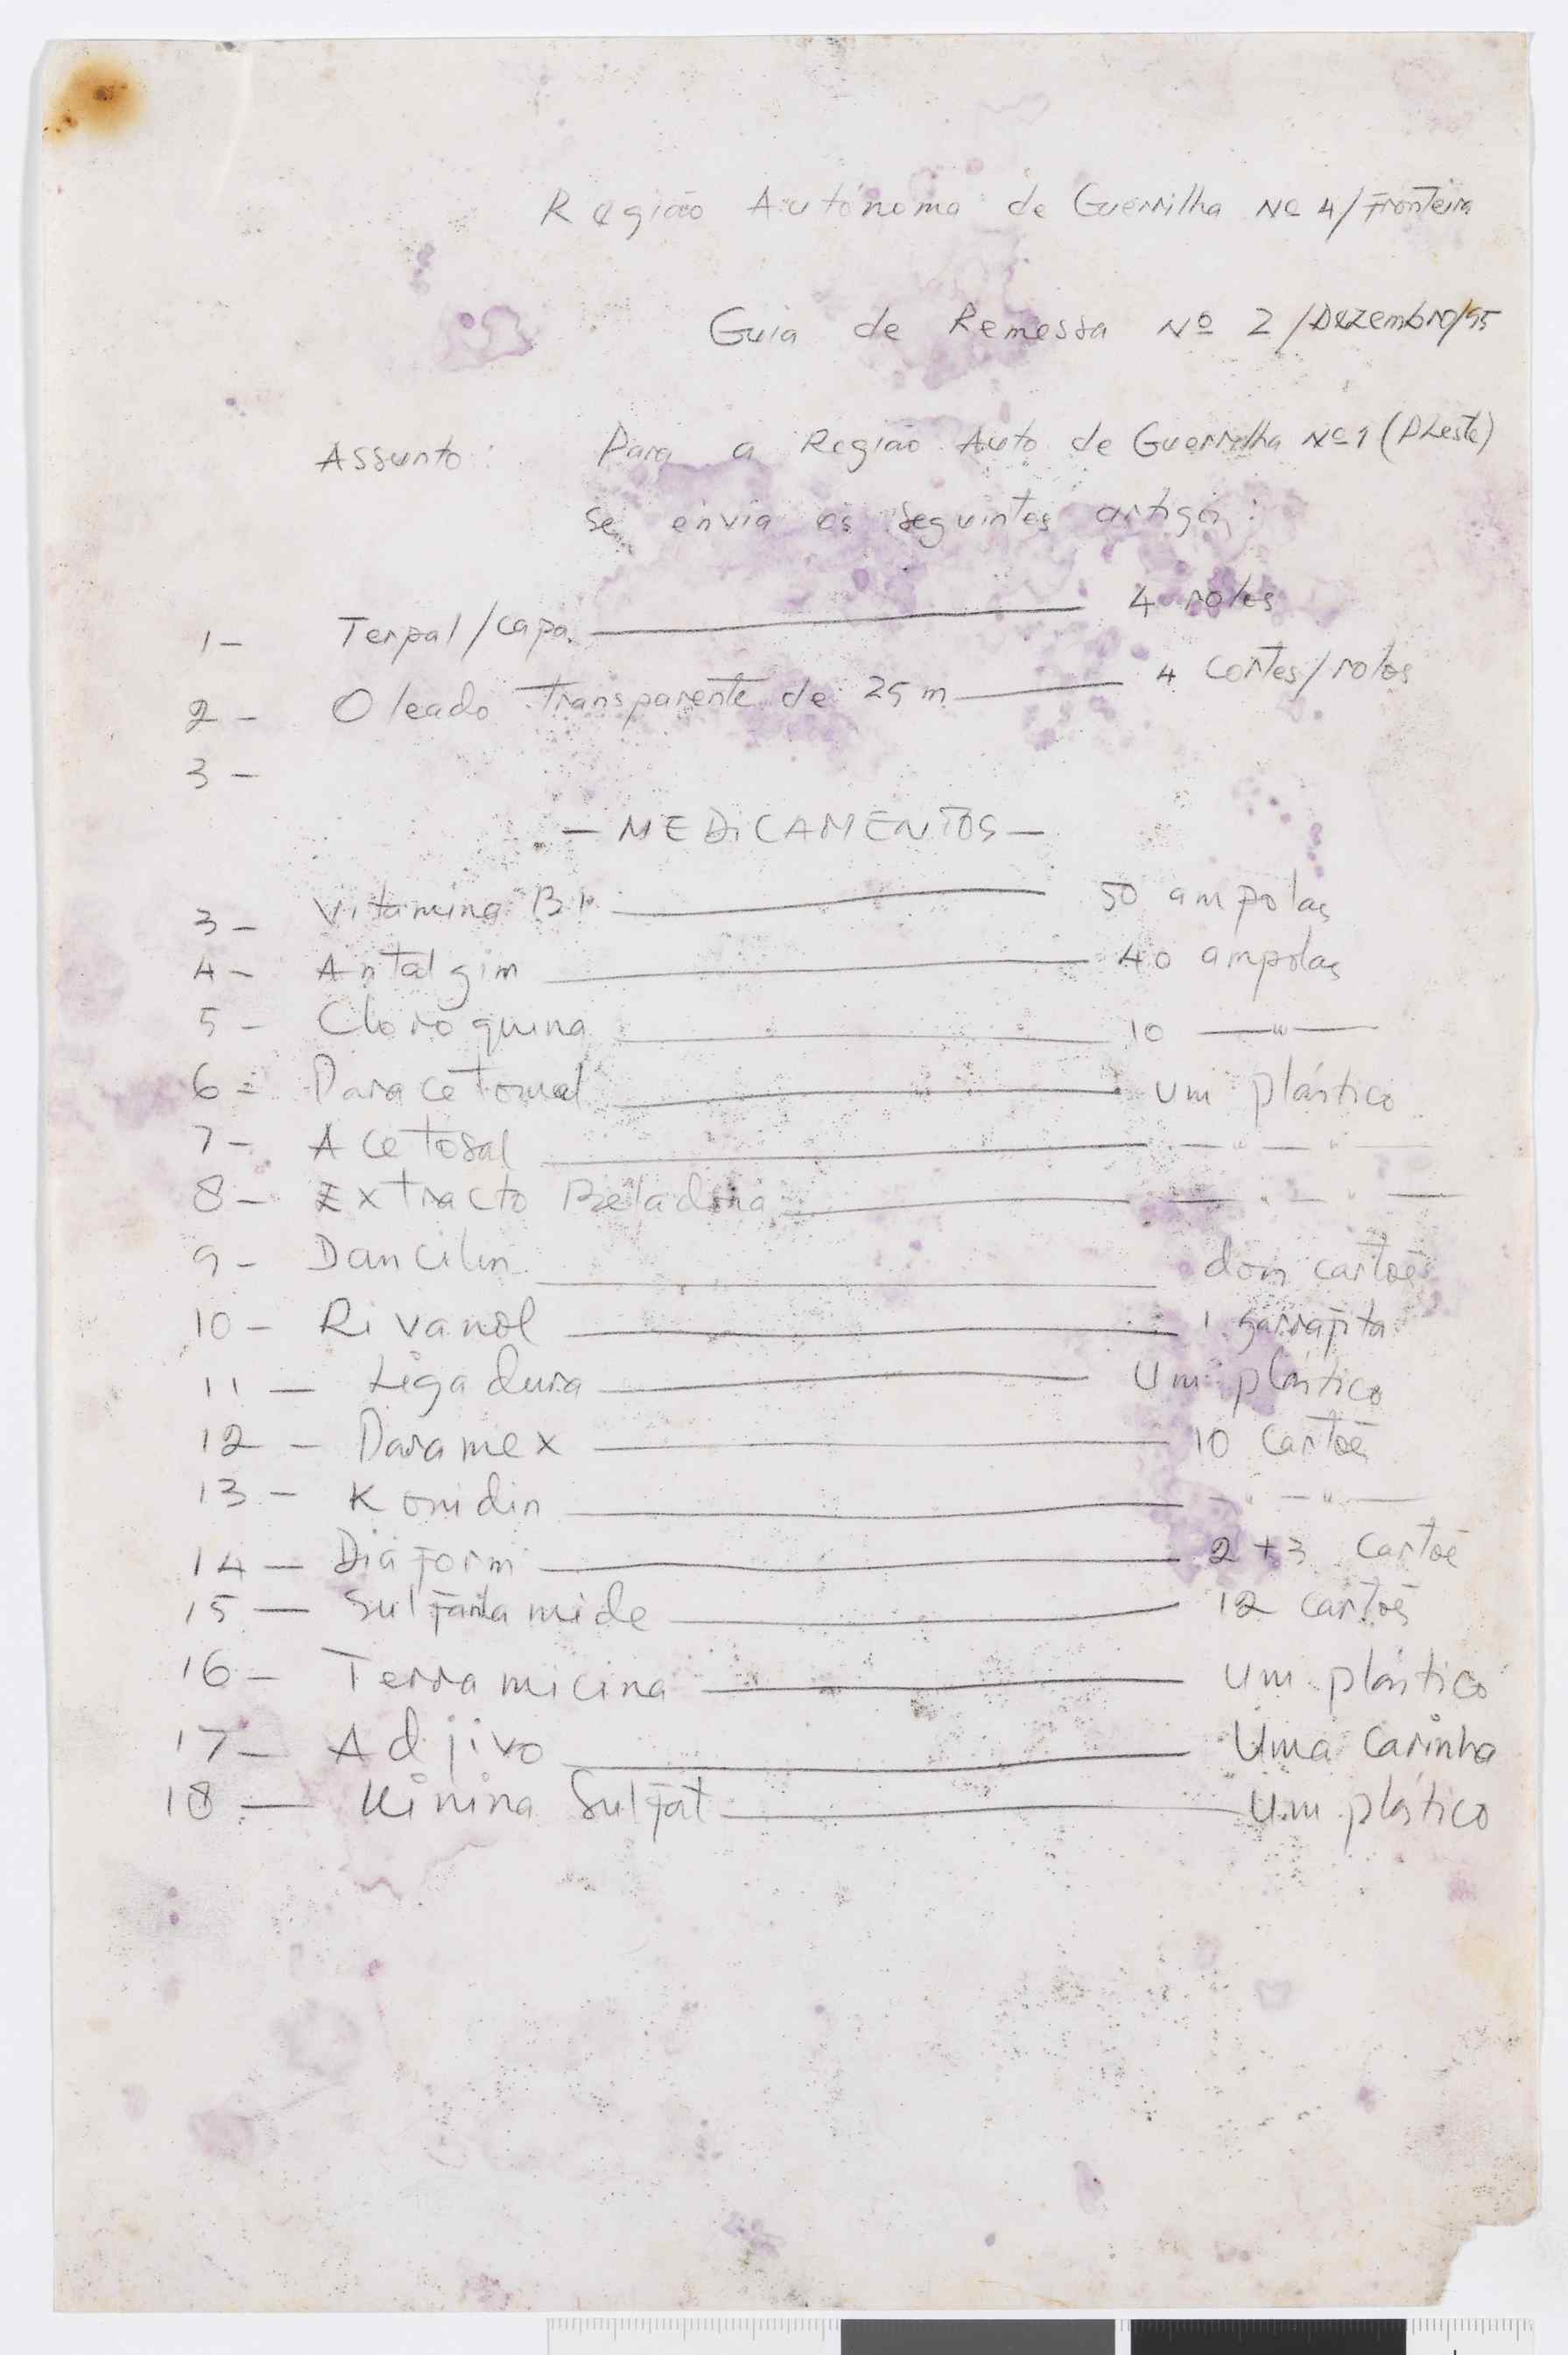 Região Autónoma de Guerrilha Nº 4/Fronteira
Guia de Remessa Nº 2/Dezembro/95
Assunto: Para a Região Auto de Guerrilha Nº 1 (PLeste)
se envia os seguintes artigos:
1- Terpal/capa 4 rolos
2- Oleado transparente de 25 m 4 cortes/rolos
3-
- MEDICAMENTOS -
3- Vitamina B1 50 ampolas
4- Antalgim 40 ampolas
5- Cloroquina 10 —"—
6- Paracetomal um plástico
7- Acetosal — " — " —
8- Extracto Beladona — " — " —
9- Pancilin dois cartoẽ
10- Rivanol 1 garrafita
11- Ligadura Um plástico
12- Paramex 10 Cartoẽ
13- Konidin — " — " —
14- Diaform 2+3 Cartoẽ
15- Sulfanlamide 12 cartoẽs
16- Terramicina um plástico
17- Adjivo Uma carinha
18- Kinina Sulfat Um plástico